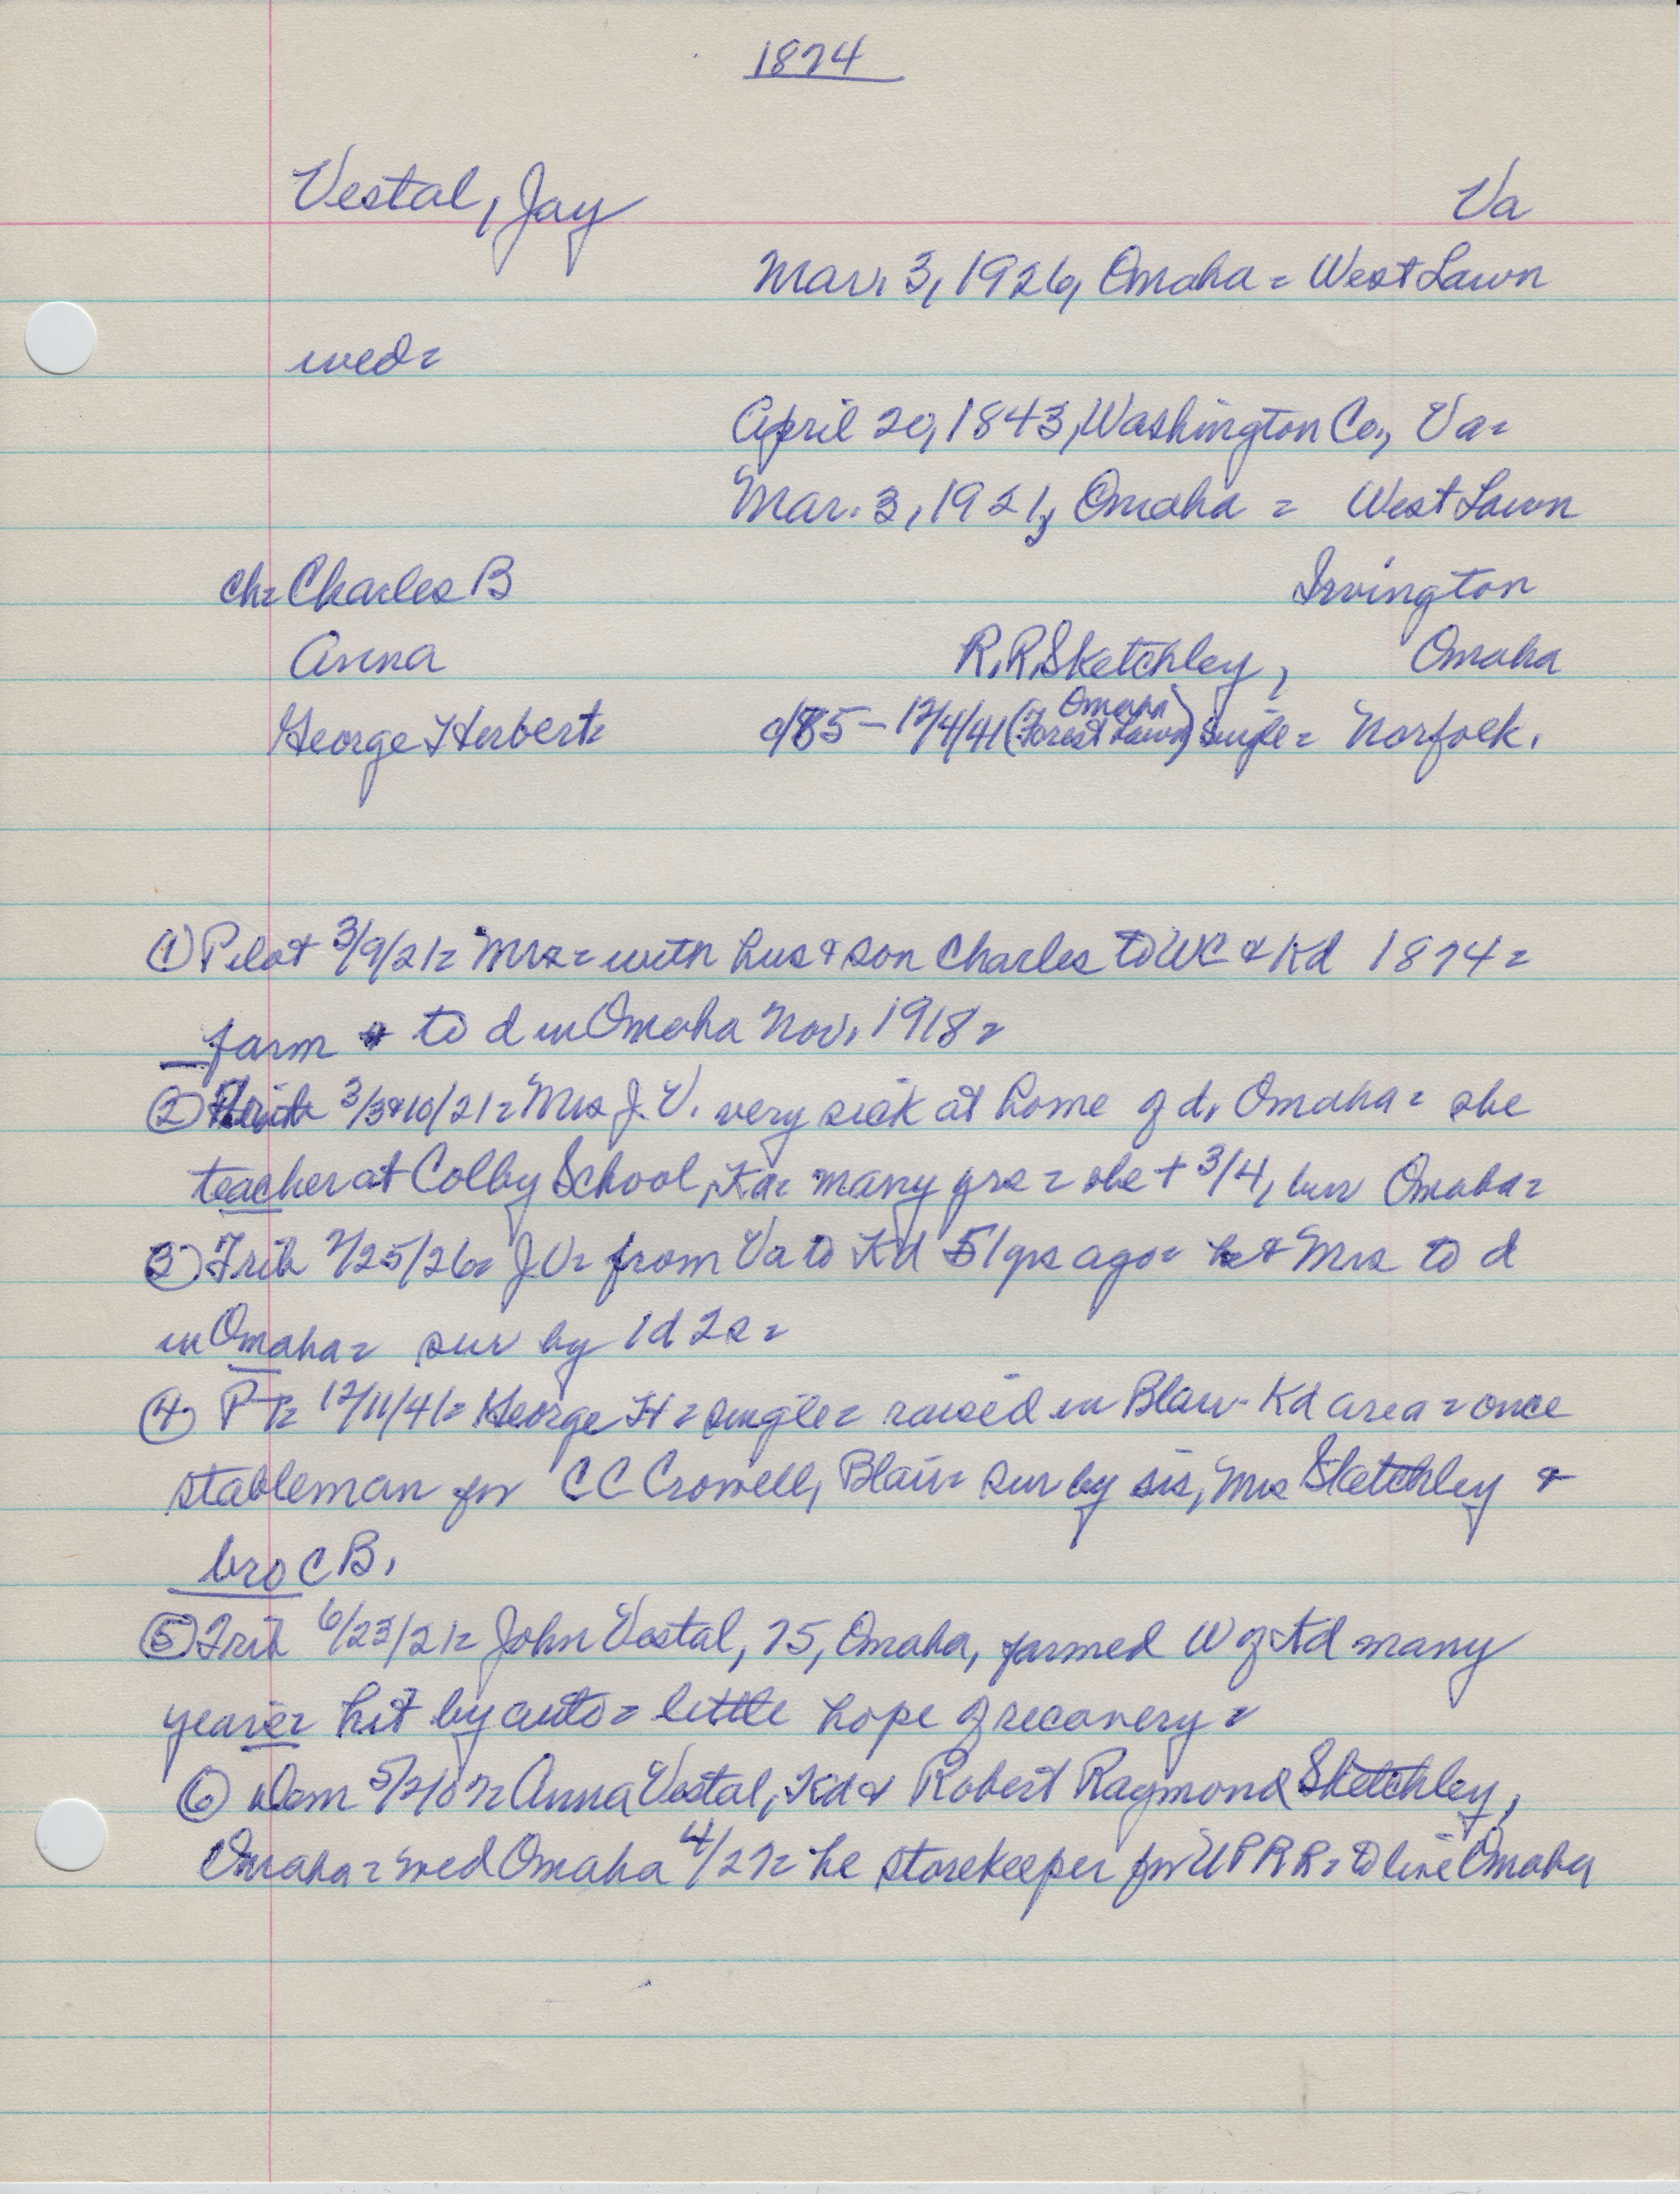 1874
Vestal, Jay Va
Mar. 3, 1926, Omaha = West Lawn
wed=
April 20, 1843, Washington Co., Va=
Mar. 3, 1921, Omaha = West Lawn
ch= Charles B Irvington
Anna R.R. Sketchley, Omaha
George Herbert= c/85 - 12/4/41 (Omaha Forest Lawn) single = Norfolk.
① Pilot 3/9/21= Mrs= with hus & son Charles to WC & Kd 1874=
farm to d in Omaha Nov. 1918=
② Trib 3/3&10/21= Mrs J.V. very sick at home of d, Omaha= she
teacher at Colby School, many yrs = she + 3/4, bur Omaha=
③ Trib 2/25/26= JV= from Va to Kd 51 yrs ago= he & Mrs to d
in Omaha= sur by 1d 2s=
④ PT= 12/11/41= George H= single= raised in Blair-Kd area= once
stableman for CC Crowell, Blair= sur by sis, Mrs Sketchley &
bro CB.
⑤ Trib 6/23/21= John Vestal, 75, Omaha, farmed W of Kd many
years= hit by auto= little hope of recovery=
⑥ Dem 5/2/07= Anna Vestal, Kd & Robert Raymond Sketchley,
Omaha= wed Omaha 4/27= he storekeeper for UPRR= to live Omaha